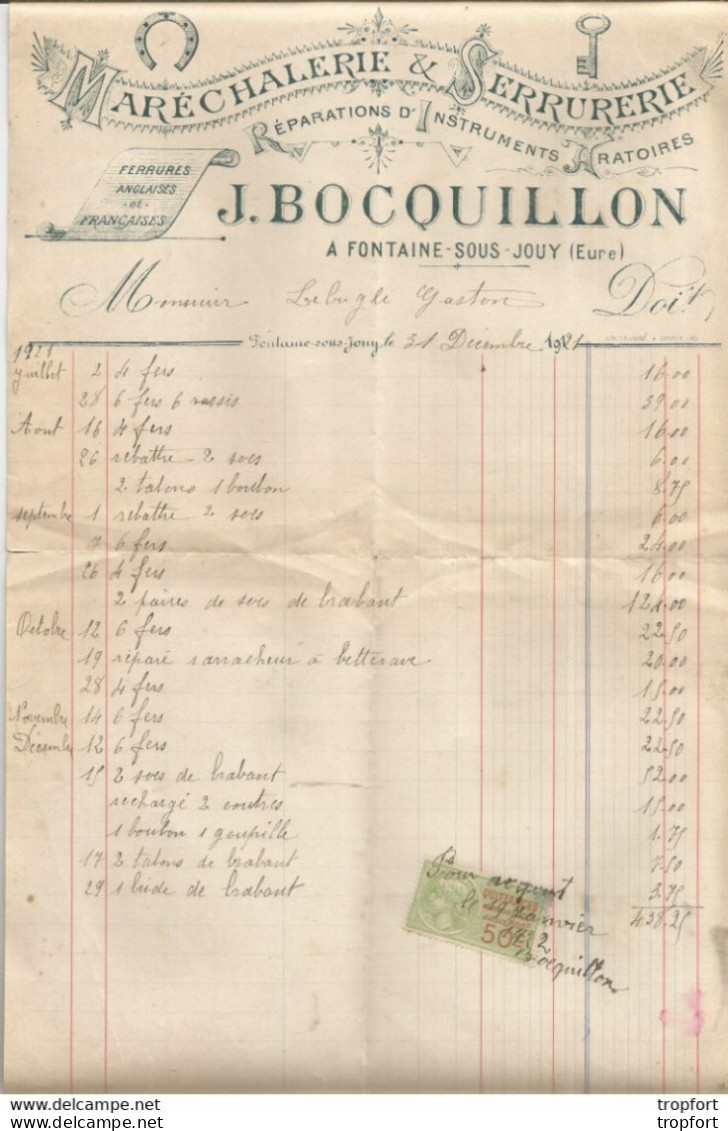 MARÉCHALERIE & SERRURERIE
RÉPARATIONS D'INSTRUMENTS ARATOIRES
FERRURES
ANGLAISES
-DE-
FRANÇAISES
J. BOCQUILLON
A FONTAINE-SOUS-JOUY (Eure)
Monsieur Lebugle Gaston Doit
Fontaine-sous-Jouy, le 31 Décembre 1921
1921
Juillet 2 4 fers 16.00
28 6 fers 6 rassis 39.00
Aout 16 4 fers 16.00
26 rebattre - 2 socs 6.00
2 talons 1 boulon 8.75
septembre 1 rebattre 2 socs 6.00
7 6 fers 24.00
26 4 fers 16.00
2 paires de socs de brabant 124.00
Octobre 12 6 fers 22.50
19 réparé 1 arracheur à betterave 20.00
28 4 fers 15.00
Novembre 14 6 fers 22.50
Décembre 12 6 fers 22.50
15 2 socs de brabant 52.00
rechargé 2 coutres 15.00
1 boulon 1 goupille 1.75
17 2 talons de brabant 7.50
29 1 bride de brabant 3.75
438.25
Pour acquit
le 29 Janvier
1922
Bocquillon
50
tropfort
tropfort
tropfort
tropfort